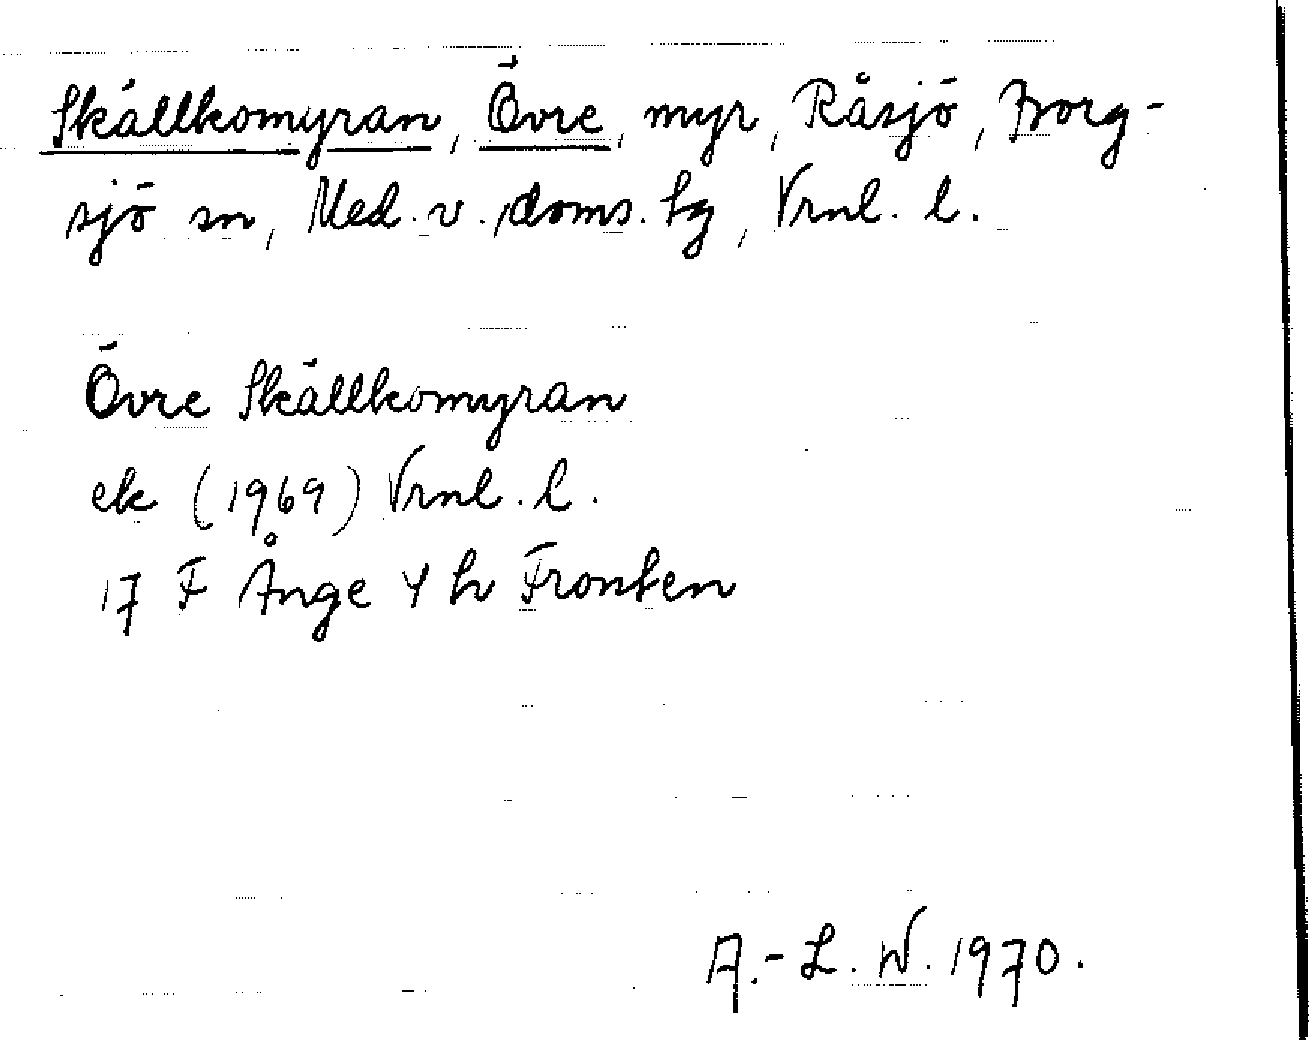 Skállkomyran, Övre, myr, Råsjö, Borg-
sjö sn, Med. v. doms. hg, Vrnl. l.
Övre Skállkomyran
ek (1969) Vrnl. l.
17 F Ånge 4 h Fronten
A.-L. W. 1970.